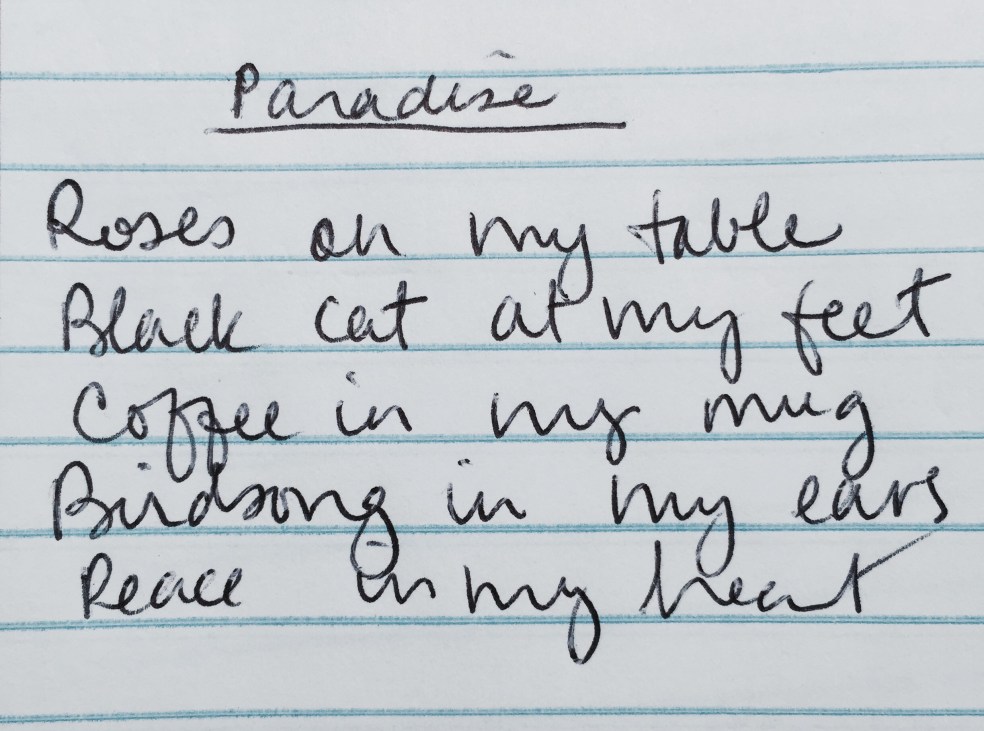 Paradise
Roses on my table
Black cat at my feet
Coffee in my mug
Birdsong in my ears
Peace in my heart